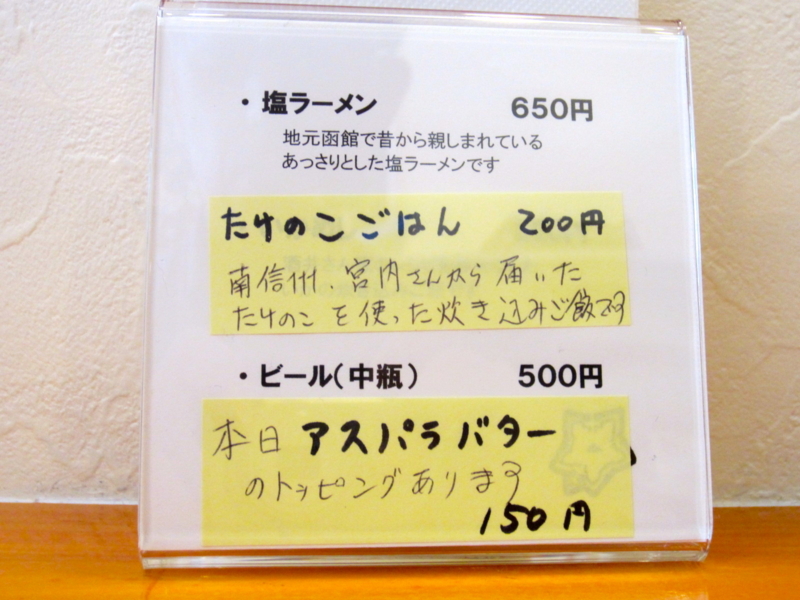 ・塩ラーメン 650円
地元函館で昔から親しまれている
あっさりとした塩ラーメンです
たけのこごはん 200円
南信州、宮内さんから届いた
たけのこを使った炊き込みご飯です
・ビール(中瓶) 500円
本日アスパラバター
のトッピングあります
150円